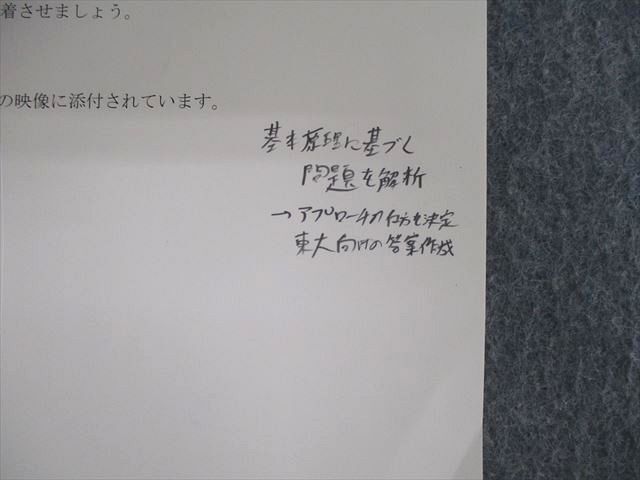 着させましょう。
の映像に添付されています。
基本原理に基づく
問題を解析
→アプローチの仕方を決定
東大向けの答案作成